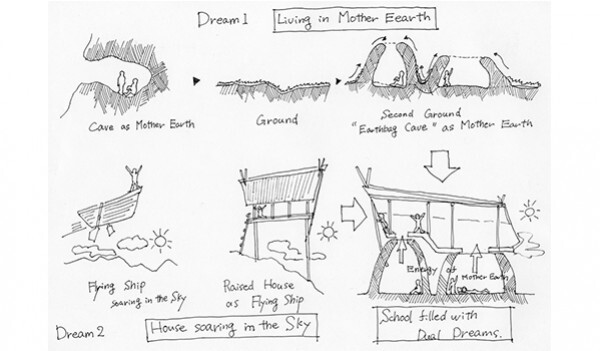 Dream 1
Living in Mother Eearth
Cave as Mother Earth
Ground
Second Ground
"Earthbag Cave" as Mother Earth
Flying Ship
soaring in the Sky
Raised House
as Flying Ship
Energy of Mother Earth
School filled with
Dual Dreams.
Dream 2
House soaring in the Sky